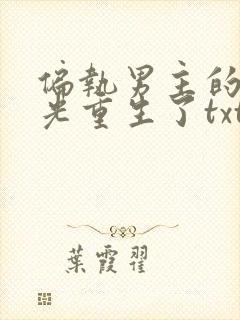 偏執男主的
光重生了txt
葉霞翟